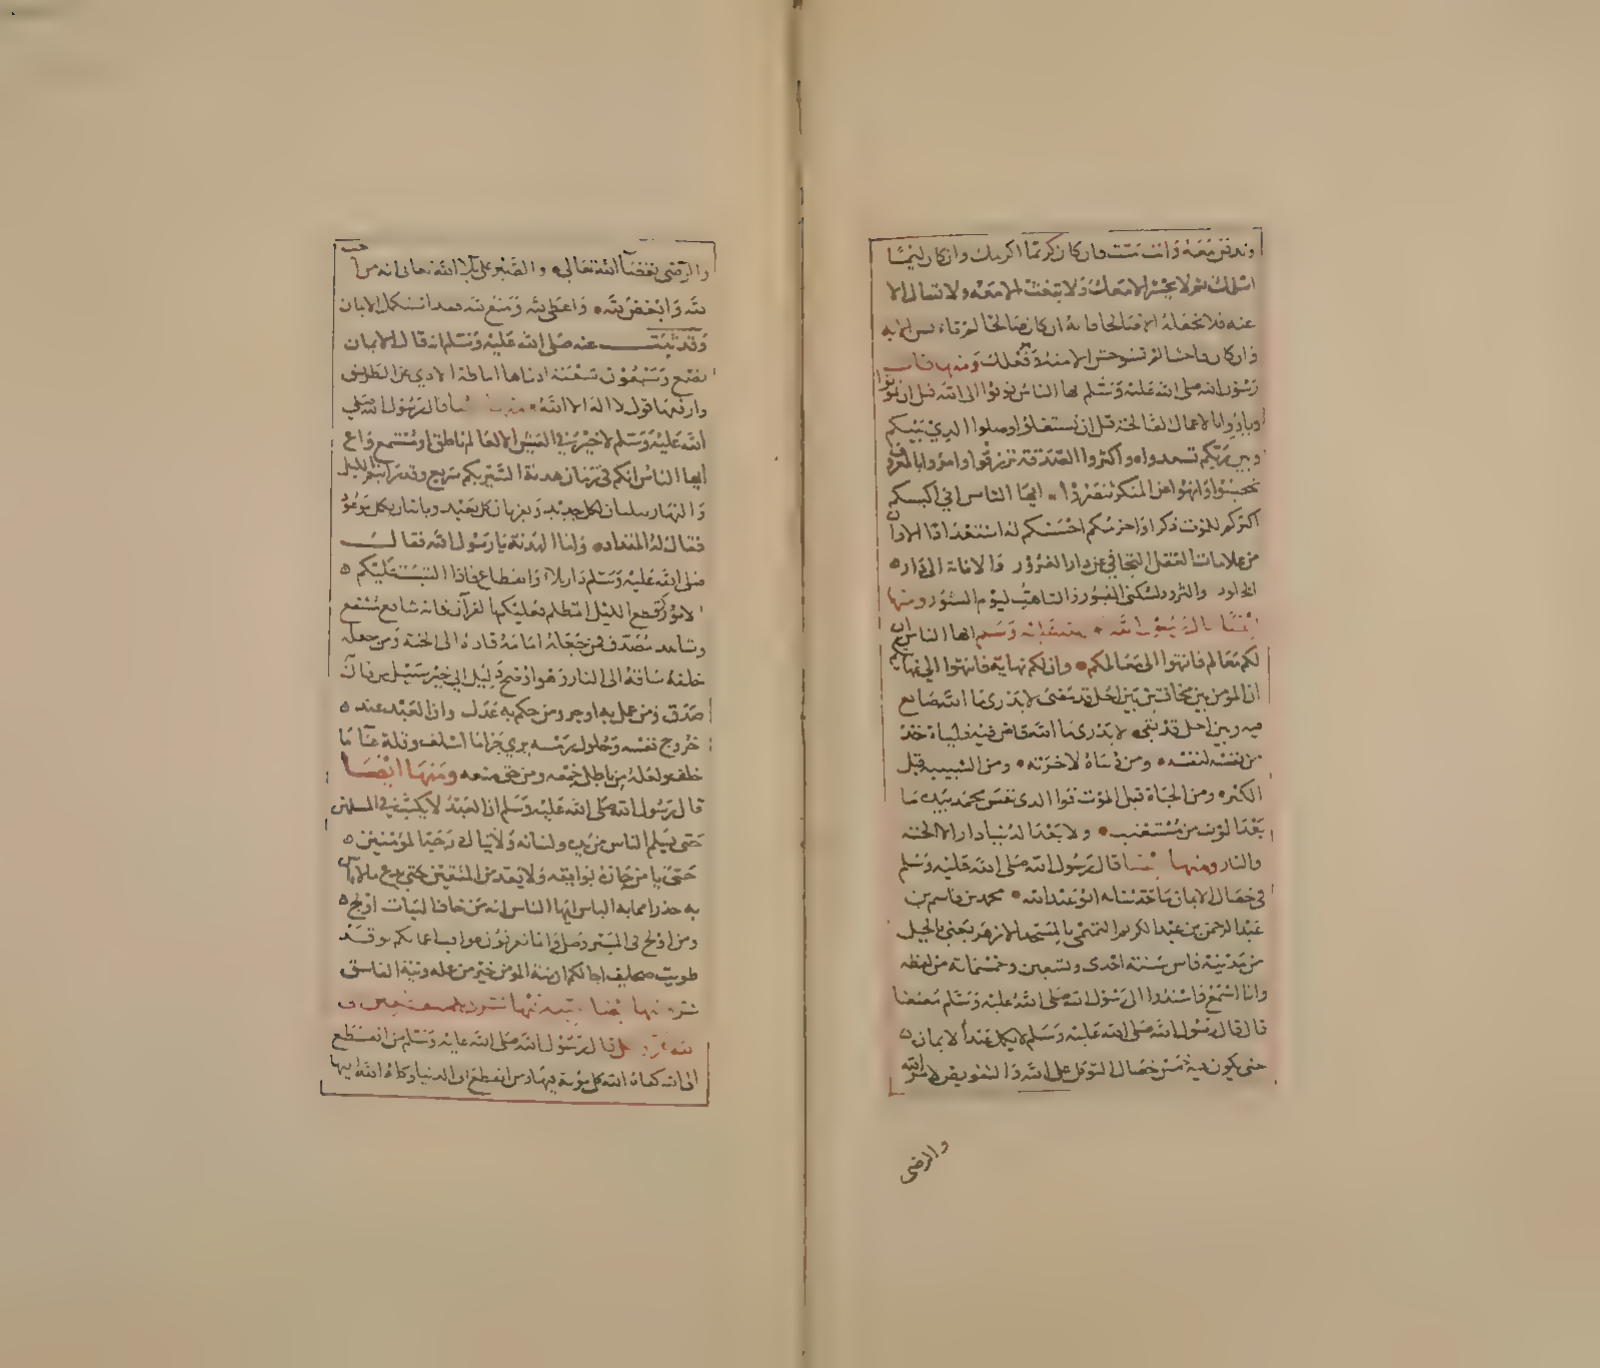 وتدفن معه وانت ميت فان كان كريما اكرمك وان كان لئيما
اسلمك ثم لا يحشر الا معك ولا تبعث الا معه ولا تسال الا
عنه فلا تجعله الا صالحا فانه ان كان صالحا لم تانس الا به
وان كان فاحشا لم تستوحش الا منه وهو فعلك ومنها قال
رسول الله صلى الله عليه وسلم يايها الناس توبوا الى الله قبل ان تموتوا
وبادروا بالاعمال الصالحة قبل ان تشتغلوا وصلوا الذي بينكم
وبين ربكم تسعدوا واكثروا الصدقة ترزقوا وامروا بالمعروف
تحصنوا وانهوا عن المنكر تنصروا ايها الناس ان اكيسكم
اكثركم للموت ذكرا واحزمكم احسنكم له استعدادا الا وان
من علامات العقل التجافي عن دار الغرور والانابة الى دار
الخلود والتزود لسكنى القبور والتاهب ليوم النشور ومنها
ايضا قال رسول الله صلى الله عليه وسلم ايها الناس ان
لكم معالم فانتهوا الى معالمكم وان لكم نهاية فانتهوا الى نهايتكم
ان المؤمن بين مخافتين بين اجل قد مضى لا يدري ما الله صانع
فيه وبين اجل قد بقي لا يدري ما الله قاض فيه فلياخذ
من نفسه لنفسه ومن دنياه لاخرته ومن الشبيبة قبل
الكبر ومن الحياة قبل الموت فوا الذي نفس محمد بيده ما
بعد الموت من مستعتب ولا بعد الدنيا دار الا الجنة
والنار ومنها ايضا قال رسول الله صلى الله عليه وسلم
في خصال الايمان ما حدثنا به ابو عبد الله محمد بن قاسم بن
عبد الرحمن بن عبد الكريم التميمي بالمسجد الازهر بعين الخيل
من مدينة فاس سنة احدى وتسعين وخمسمائة من لفظه
وانا اسمع فاسنده الى رسول الله صلى الله عليه وسلم معنعنا
قال قال رسول الله صلى الله عليه وسلم لا يكمل عبد الايمان
حتى يكون فيه خمس خصال التوكل على الله والتفويض لامر الله
والرضى
والرضى بقضا الله تعالى والصبر على بلا الله تعالى انه من احب
لله وابغض لله واعطى لله ومنع لله فقد استكمل الايمان
وقد ثبت عنه صلى الله عليه وسلم انه قال الايمان
بضع وسبعون شعبة ادناها اماطة الاذى عن الطريق
وارفعها قول لا اله الا الله ومنها ايضا قال رسول الله صلى
الله عليه وسلم لا خير في العيش الا لعالم ناطق او مستمع واع
ايها الناس انكم في زمان هدنة السير بكم سريع وقد رايتم الليل
والنهار يبليان كل جديد ويقربان كل بعيد وياتيان بكل موعود
فقال له المقداد وما الهدنة يا رسول الله فقال
صلى الله عليه وسلم دار بلاء وانقطاع فاذا التبست عليكم
الامور كقطع الليل المظلم فعليكم بالقرآن فانه شافع مشفع
وشاهد مصدق فمن جعله امامه قاده الى الجنة ومن جعله
خلفه ساقه الى النار وهو اوضح دليل الى خير سبيل من قال به
صدق ومن عمل به اوجر ومن حكم به عدل وان العبد عند
خروج نفسه وحلول رمسه يرى جزاء ما اسلف وقلة غنا ما
خلف ولعله من باطل جمعه ومن حق منعه ومنها ايضا
قال رسول الله صلى الله عليه وسلم ان العبد لا يكتب في المسلمين
حتى يسلم الناس من يده ولسانه ولا ينال درجة المؤمنين
حتى يامن جاره بوائقه ولا يعد من المتقين حتى يدع ما لا باس
به حذرا مما به الباس ايها الناس انه من خاف البيات ادلج
ومن ادلج في المسير وصل وانما تعرفون عواقب اعمالكم لو قد
طويت صحايف اجالكم ان نية المؤمن خير من عمله ونية الفاسق
شر
قال رسول الله صلى الله عليه وسلم من انقطع
الى الله كفاه الله كل مؤنة فيها ومن انقطع الى الدنيا وكله الله اليها